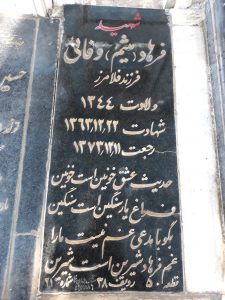 شهید
فرهاد (میثم) وفائی
فرزند فلامرز
ولادت ۱۳۴۴
شهادت ۱۳۶۳,۱۲,۲۲
رجعت ۱۳۷۳,۱۲,۱۱
حدیث عشق خونین است خونین
فراغ یار سنگین است سنگین
بگو با مدعی غم نیست ما را
غم فرهاد شیرین است شیرین
قطعه ۵۰ ردیف ۳۸ شماره ۲۱